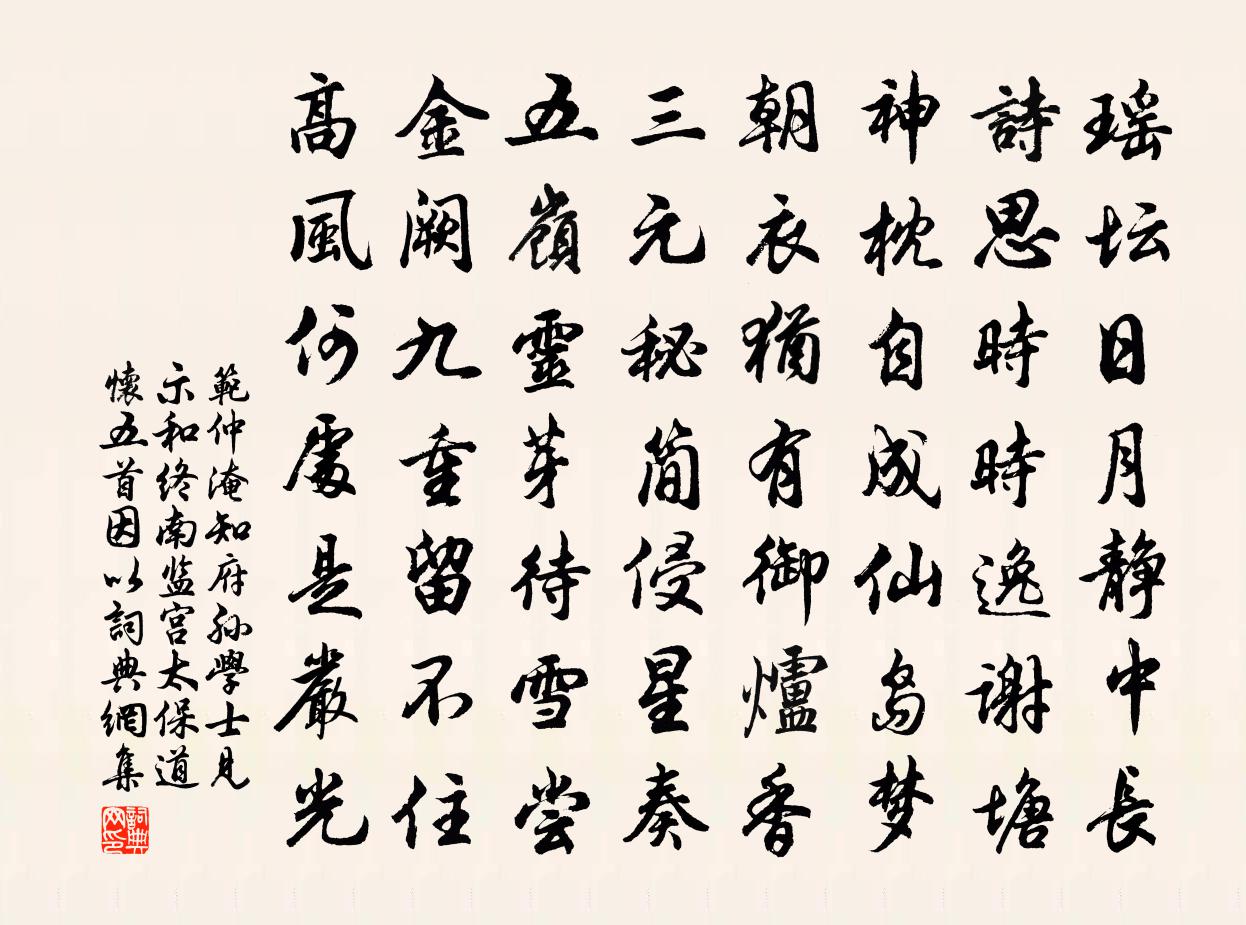 瑶坛日月静中長
詩思時時逸謝塘
神枕自成仙岛梦
朝衣猶有御爐香
三元秘简侵星奏
五嶺靈芽待雪尝
金阙九重留不住
高風何處是嚴光
範仲淹知府孙學士見
示和终南监宫太保道
懷五首因以詞典網集
詞典
网印